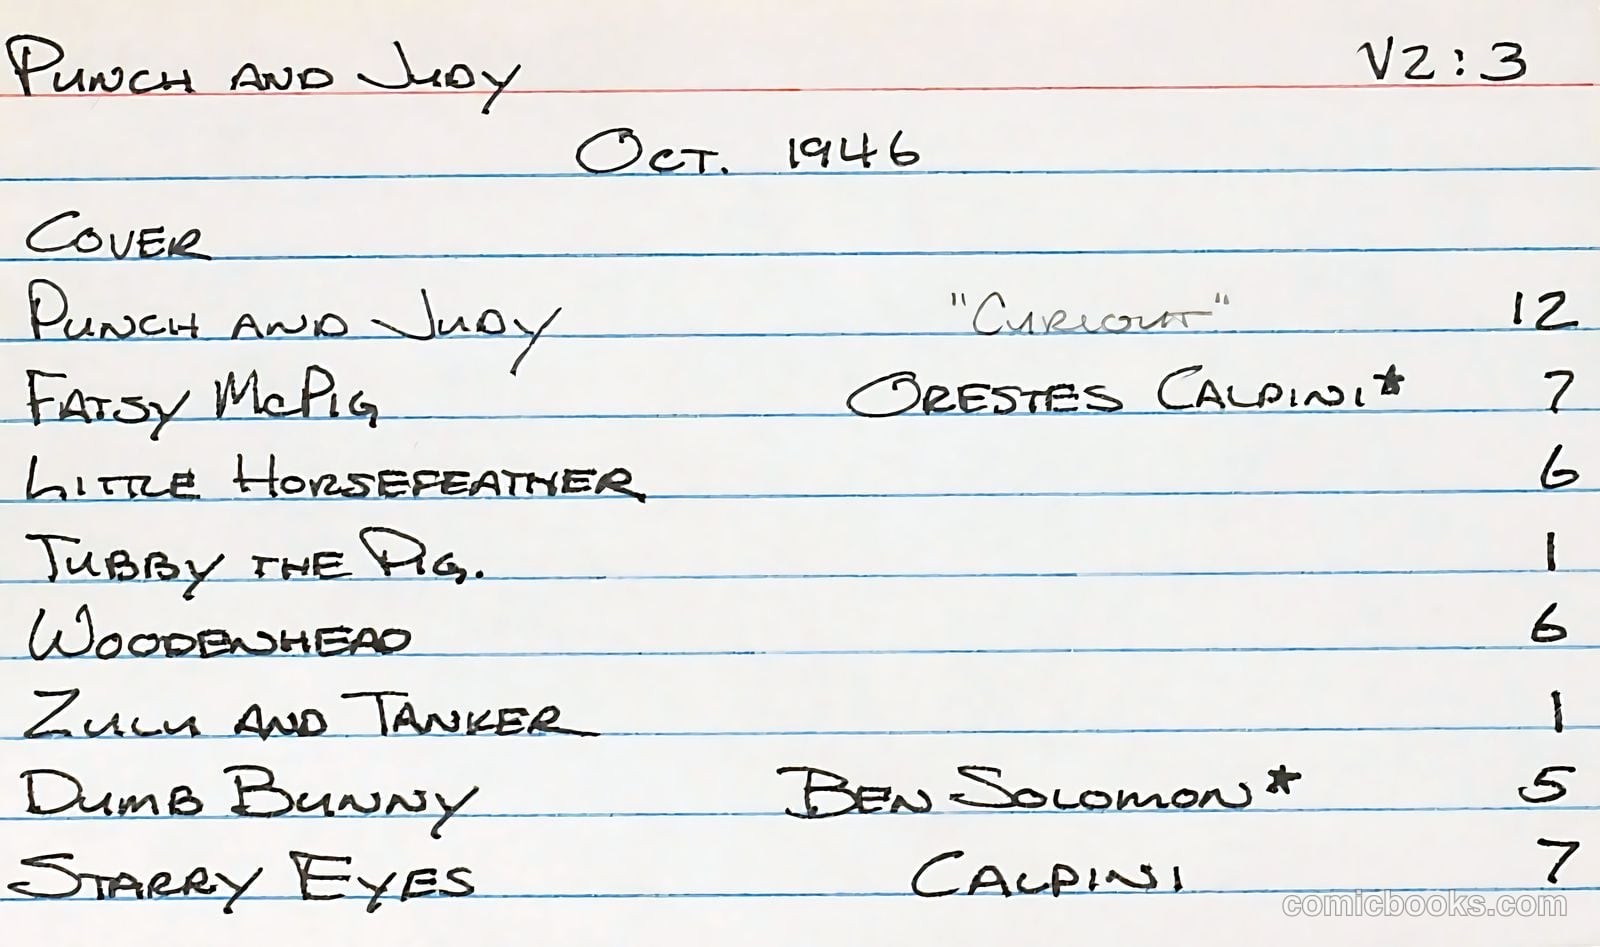 Punch and Judy V2:3
Oct. 1946
Cover
Punch and Judy "Curlout" 12
Fatsy McPig Orestes Calpini* 7
Little Horsefeather 6
Tubby the Pig. 1
Woodenhead 6
Zulu and Tanker 1
Dumb Bunny Ben Solomon* 5
Starry Eyes Calpini 7
comicbooks.com